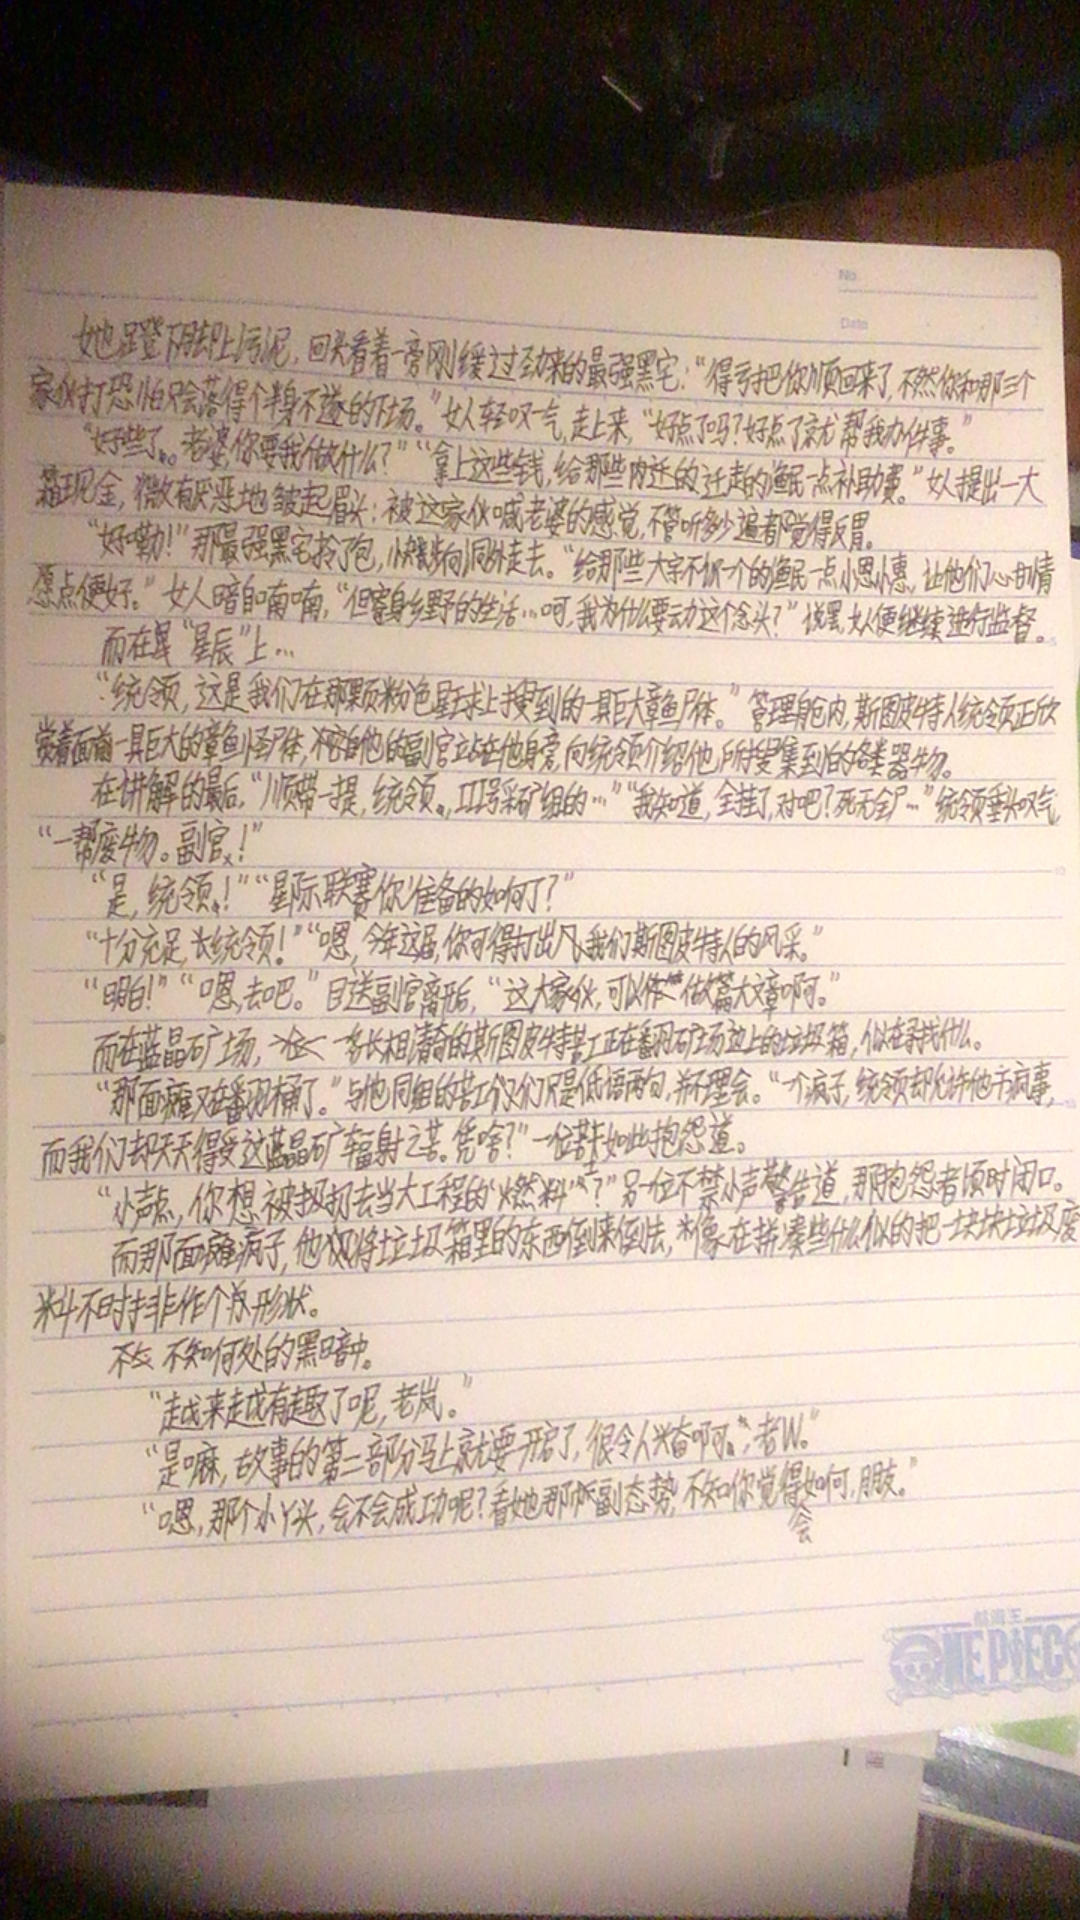 No.
Date
她蹬下脚上污泥，回头看着一旁刚缓过劲来的最强黑宅：“得亏把你顺回来了，不然你和那三个
家伙打恐怕只会落得个半身不遂的下场。”女人轻叹一气，走上来，“好点了吗？好点了就帮我办件事。”
“好些了。老婆，你要我做什么？”“拿上这些钱，给那些内迁的迁走的渔民一点补助费。”女人提出一大
箱现金，微有厌恶地皱起眉头：被这家伙喊老婆的感觉，不管听多少遍都觉得反胃。
“好嘞！”那最强黑宅拎了包，小步向洞外走去。“给那些大字不识一个的渔民一点小恩小惠，让他们心甘情
愿点便好。”女人暗自喃喃，“但寄身乡野的生活…呵，我为什么要动这个念头？”说罢，女人便继续进行监督。
而在 “星辰”上…
“统领，这是我们在那颗粉色星球上搜到的一具巨大章鱼尸体。”管理舱内，斯图皮特人统领正欣
赏着面前一具巨大的章鱼怪尸体，他的副官站在他身旁，向统领介绍他所搜集到的各类器物。
在讲解的最后，“顺带一提，统领，II号采矿组的…”“我知道，全挂了，对吧？死无全尸…”统领垂头叹气，
“一帮废物。副官！”
“是，统领！”“星际联赛你准备的如何了？”
“十分充足，统领！”“嗯，今年这届，你可得打出我们斯图皮特人的风采。”
“明白！”“嗯，去吧。”目送副官离开后，“这大家伙，可以做篇大文章啊。”
而在蓝晶矿广场，一名长相清奇的斯图皮特苦工正在翻矿场边上的垃圾箱，似在寻找什么。
“那面瘫又在翻桶了。”与他同组的苦工们只是低语两句，并不理会。“一个疯子，统领却允许他干疯事，
而我们却天天得受这蓝晶矿辐射之苦。凭啥？”一位苦工如此抱怨道。
“小声点，你想被扔去当大工程的‘燃料’吗？”另一位不禁小声警告道，那抱怨者顿时闭口。
而那面瘫疯子，他仅将垃圾箱里的东西倒来倒去，像在拼凑些什么似的把一块块垃圾废
料不时排作个形状。
不知何处的黑暗中。
“越来越有趣了呢，老岚。”
“是嘛，故事的第二部分马上就要开启了，很令人兴奋啊，老W。”
“嗯，那个小丫头，会不会成功呢？看她那副态势，不知你会觉得如何，朋友。”
航海王
ONE PIECE